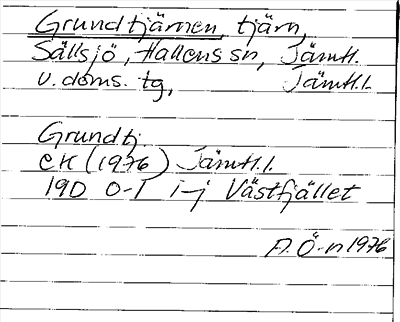 Grundtjärnen, tjärn,
Sällsjö, Hallens sn, Jämtl.
v. doms. tg, Jämtl.l.
Grundtj.
EK (1976) Jämtl.l.
19D 0-1 i-j Västfjället
A. Ö-n 1976